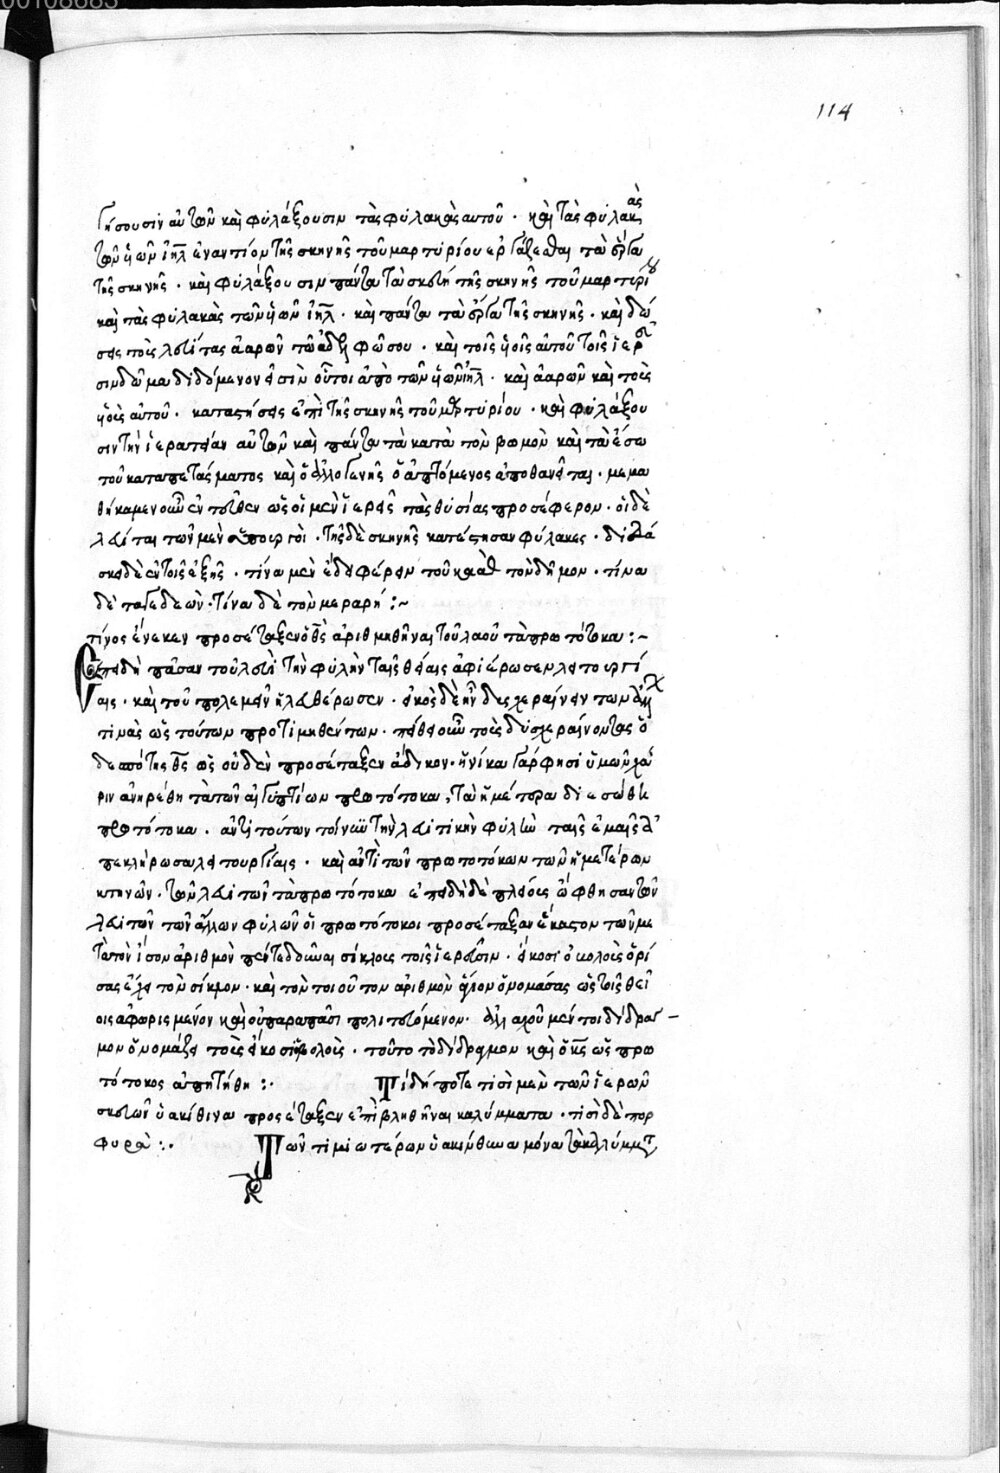 00108683
114
γήσουσιν αὐτῶν καὶ φυλάξουσιν τὰς φυλακὰς αὐτοῦ · καὶ τὰς φυλακὰς
τῶν υἱῶν ἰηλ ἐναντίον τῆς σκηνῆς τοῦ μαρτυρίου ἐργάζεσθαι τὰ ἔργα
τῆς σκηνῆς · καὶ φυλάξουσιν πάντα τὰ σκεύη τῆς σκηνῆς τοῦ μαρτυρίου
καὶ τὰς φυλακὰς τῶν υἱῶν ἰηλ · καὶ πάντα τὰ ἔργα τῆς σκηνῆς · καὶ δώ
σεις τοὺς λευίτας ἀαρὼν τῶ ἀδελφῶ σου · καὶ τοῖς υἱοῖς αὐτοῦ τοῖς ἱερεῦ
σιν δόμα δεδόμενον εἰσὶν οὗτοι ἀπὸ τῶν υἱῶν ἰηλ · καὶ ἀαρὼν καὶ τοὺς
υἱοὺς αὐτοῦ · καταστήσεις ἐπὶ τῆς σκηνῆς τοῦ μαρτυρίου · καὶ φυλάξου
σιν τὴν ἱερατείαν αὐτῶν καὶ πάντα τὰ κατὰ τὸν βωμὸν καὶ τὰ ἔσω
τοῦ καταπετάσματος καὶ ὁ ἀλλογενὴς ὁ ἁπτόμενος ἀποθανεῖται · μεμα
θήκαμεν οὖν ἐντεῦθεν ὡς οἱ μὲν ἱερεῖς τὰς θυσίας προσέφερον · οἱ δὲ
λευῖται τῶν μὲν ὑπουργοὶ · τῆς δὲ σκηνῆς κατέστησαν φύλακες · διδά
σκει δὲ ἐν τοῖς ἑξῆς · τίνα μὲν ἔδει φέρειν τοῦ καὰθ τὸν δῆμον · τίνα
δὲ τὸν γεδεών · τίνα δὲ τὸν μεραρή :~
τίνος ἕνεκεν προσέταξεν ὁ θς ἀριθμηθῆναι τοῦ λαοῦ τὰ πρωτότοκα :~
Ἐπειδὴ πᾶσαν τοῦ λευὶ τὴν φυλὴν ταῖς θείαις ἀφιέρωσεν λειτουργί
αις · καὶ τοῦ πολεμεῖν ἠλευθέρωσεν · εἰκὸς δὲ ἦν δυσχεραίνειν τῶν ἄλλων
τινὰς ὡς τούτων προτιμηθέντων · πείθει οὖν τοὺς δυσχεραίνοντας ὁ
δεσπότης θς ὡς οὐδὲν προσέταξεν ἄδικον · ἡνίκα γάρ φησι ὑμῶν χά
ριν ἀνηρέθη τὰ τῶν αἰγυπτίων πρωτότοκα, τὰ ἡμέτερα διεσώθη
πρωτότοκα · ἀντὶ τούτων τοίνυν τὴν λευιτικὴν φυλὴν ταῖς ἐμαῖς ἀ
πεκλήρωσα λειτουργίαις · καὶ ἀντὶ τῶν πρωτοτόκων τῶν ἡμετέρων
κτηνῶν · τῶν λευιτῶν τὰ πρωτότοκα ἐπειδὴ δὲ πλείους ὤφθησαν τῶν
λευιτῶν τῶν ἄλλων φυλῶν οἱ πρωτότοκοι προσέταξαν ἕκαστον τῶν με
τὰ τὸν ἴσον ἀριθμὸν πέντε δοῦναι σίκλους τοῖς ἱερεῦσιν · εἴκοσι ὀβολοὺς ὁρί
σας ἕλκειν τὸν σίκλον · καὶ τὸν τοιοῦτον ἀριθμὸν ἅγιον ὀνομάσας ὡς τοῖς θεί
οις ἀφωρισμένον καὶ οὐ παρὰ πᾶσι πολιτευόμενον · ἀλλαχοῦ μέντοι δίδραγ
μον ὀνομάζει τοὺς εἴκοσι ὀβολούς · τοῦτο τὸ δίδραγμον καὶ ὁ κς ὡς πρω
τότοκος ἀπῃτήθη :· Τί δή ποτε τισὶ μὲν τῶν ἱερῶν
σκευῶν ὑακίνθινα προσέταξεν ἐπιβληθῆναι καλύμματα · τισὶ δὲ πορ
φυρᾶ :· Τῶν τιμιωτέρων ὑακίνθινα μόνα τὰ καλύμματα